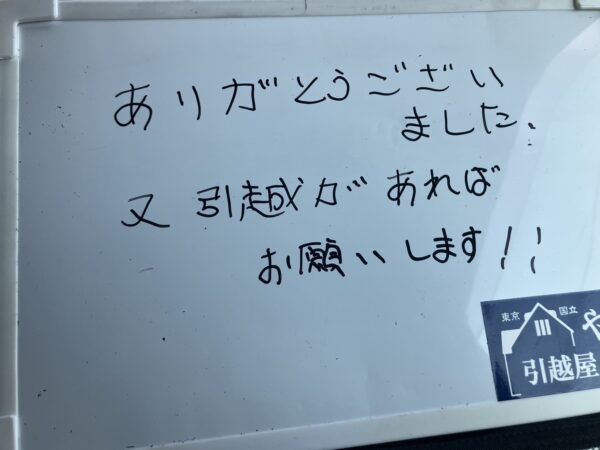 ありがとうござい
ました.
又 引越があれば
お願いします!!
東京 国立
や
引越屋